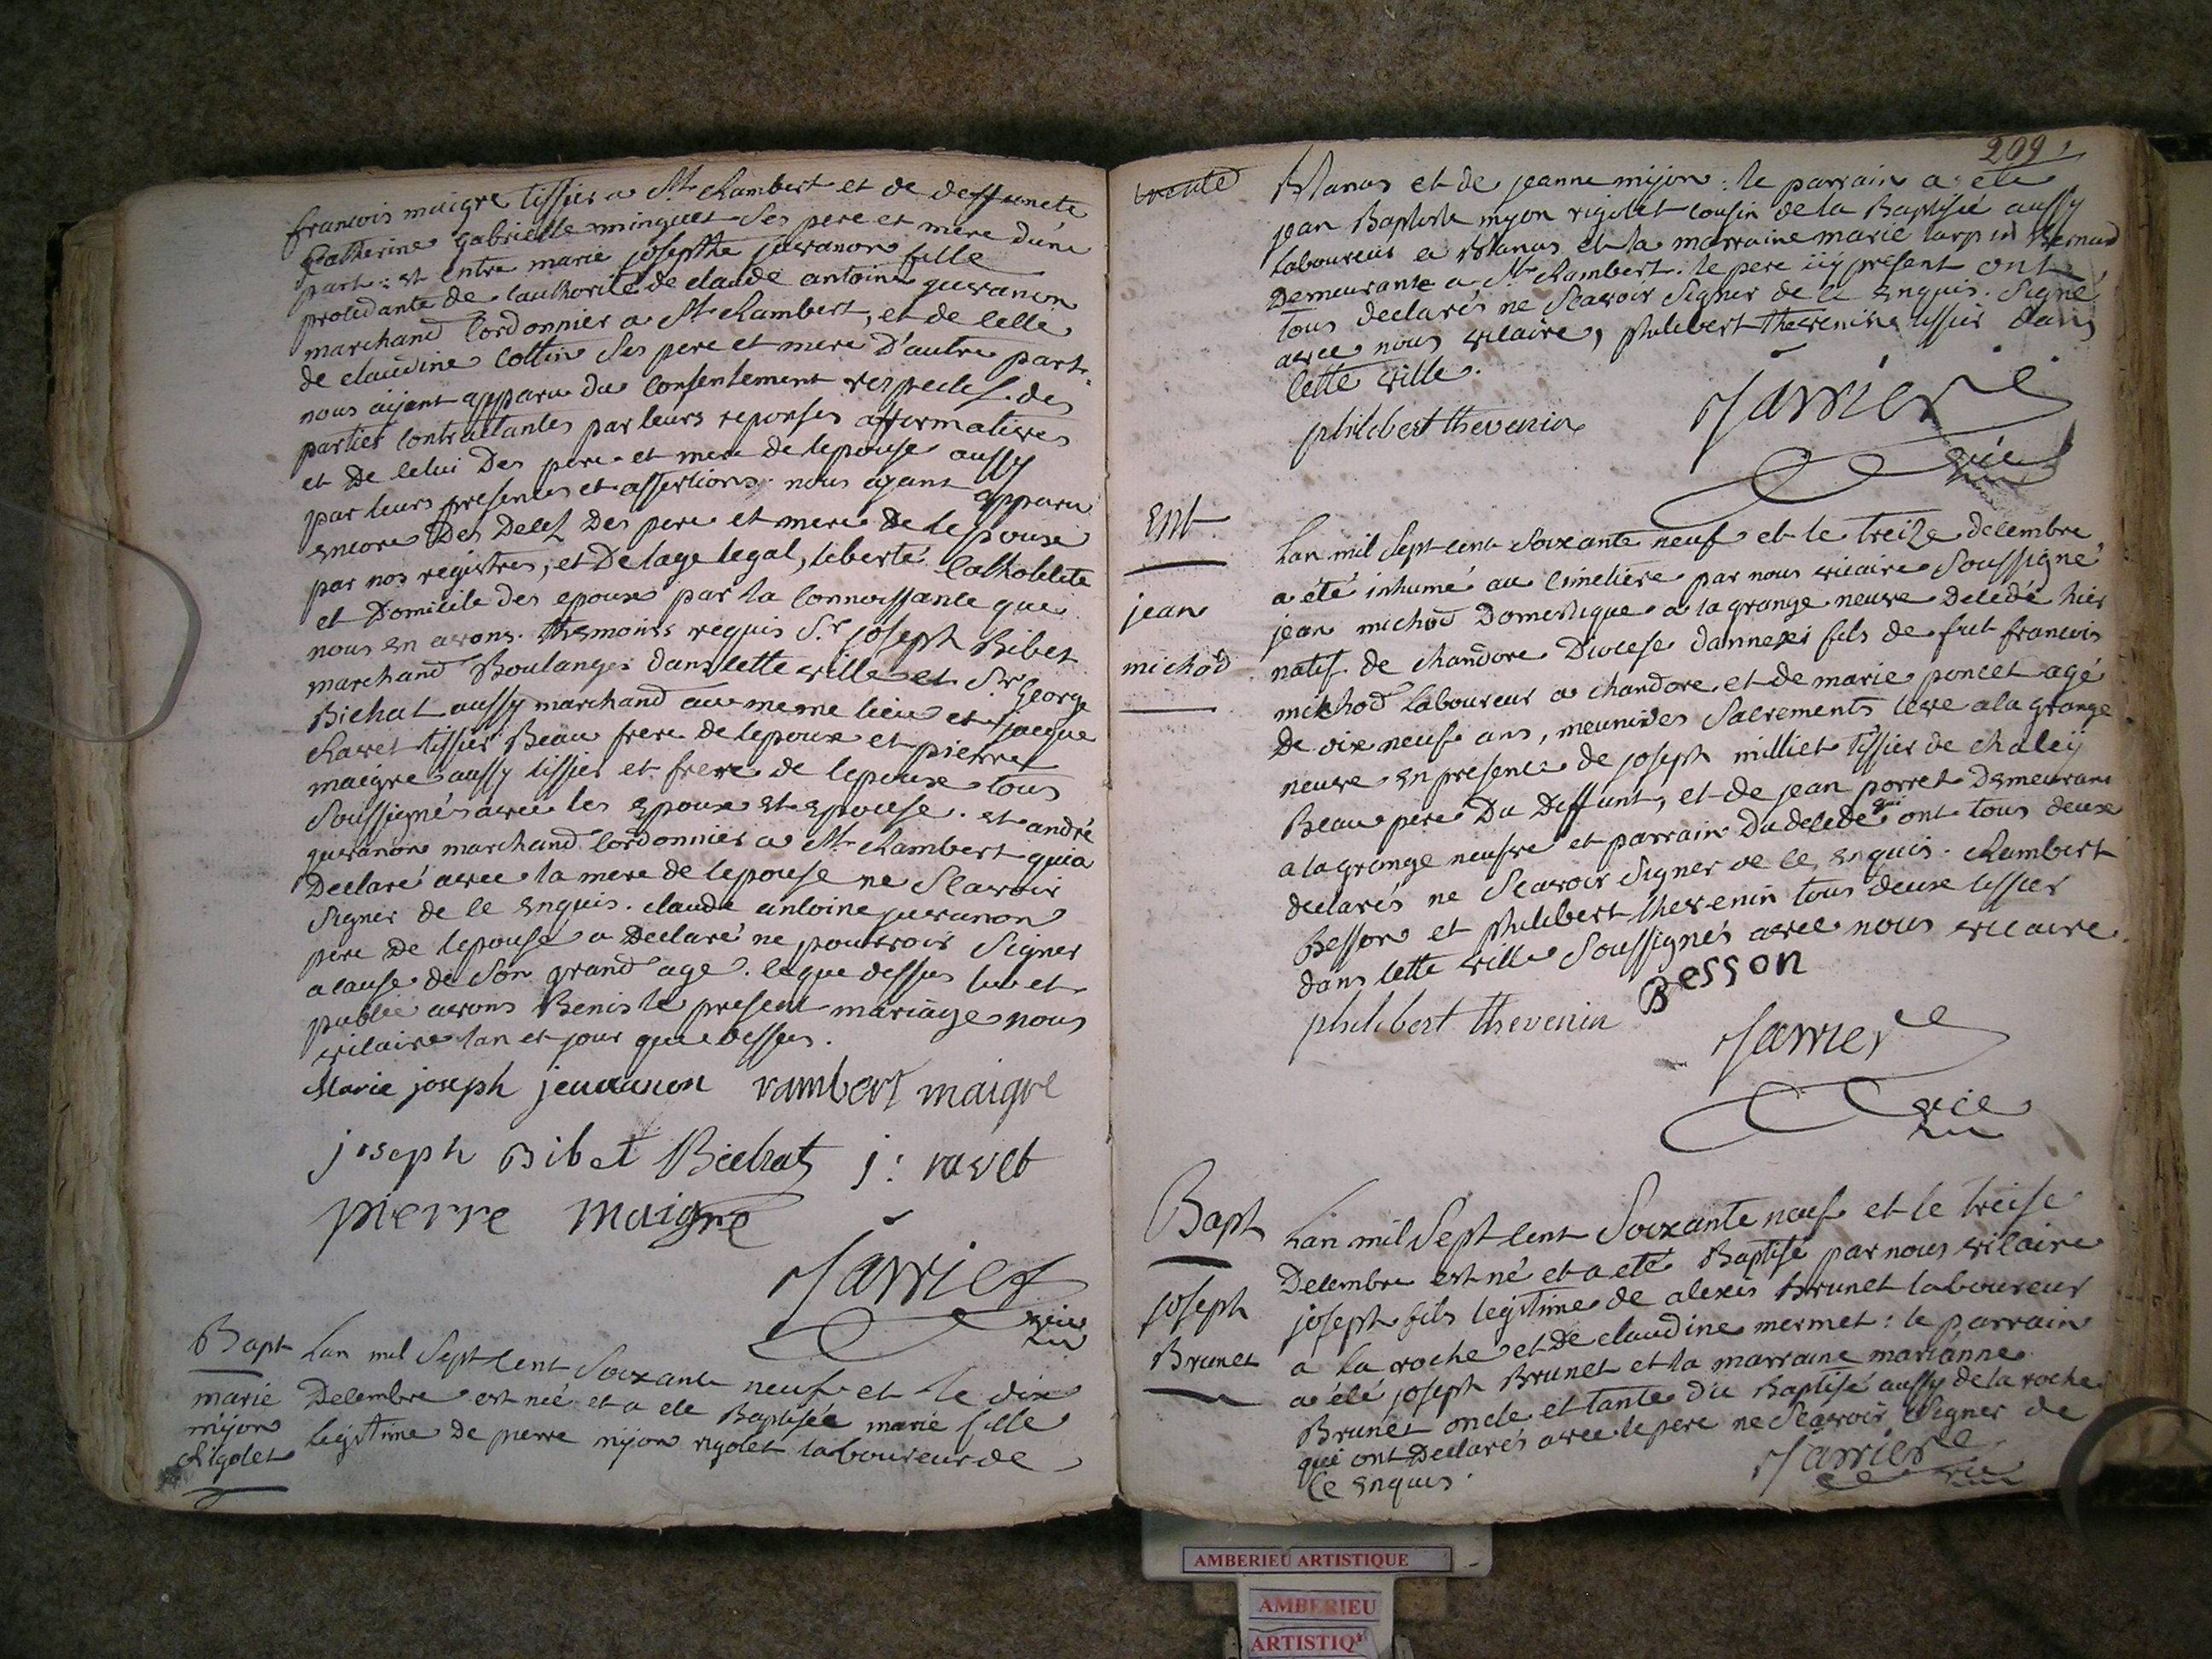 francois maigre tissier a St Rambert et de deffuncte
Catherine gabrielle minguet ses pere et mere d'une
part : et entre marie josepthe juvanon fille
procedante de l'authorité de claude antoine guvanon
marchand cordonnier a St Rambert, et de celle
de claudine cottin ses pere et mere d'autre part.
nous aijant apparu du consentement respectif des
parties contractantes par leurs reponses affirmatives
et de celui des pere et mere de lepouse aussy
par leurs presences et assertions. nous ayant apparu
encore des decez des pere et mere de lepoux
par nos registres, et de lage legal, liberté catholicité
et domicile des epoux par la connoissance que
nous en avons. thesmoins requis S.r joseph Bibet
marchand Boulanger dans cette ville et S.r George
Bichat aussy marchand au meme lieu et jacque
Ravet tissier Beau frere de lepoux et pierre
maigre aussy tissier et frere de lepoux tous
soussignés avec les epoux et epouse. et andré
guvanon marchand cordonnier a St Rambert qui a
declaré avec la mere de lepouse ne scavoir
signer de ce enquis. claude antoine juvanon
pere de lepouse a declaré ne pouvoir signer
a cause de son grand age. ce que dessus lu et
publié avons benis le present mariage nous
vicaire lan et jour que dessus.
Marie joseph jeuvanon rambert maigre
joseph Bibet Bichat j: ravet
pierre maigre
Jarrier
vic
Bapt
marie
mijon
Rigolet
Lan mil sept cent soixante neuf et le dix
decembre est née et a ete Baptisée marie fille
legitime de pierre mijon rigolet laboureur de
209
Blanas et de jeanne mijon : le parrain a ete
jean Baptiste mijon rigolet cousin de la Baptisée aussy
laboureur a Blanas et la marraine marie carpin Bernard
demeurante a St Rambert. le pere icy present ont
tous declarés ne scavoir signer de ce enquis. signé
avec nous vicaire, philibert thevenin tissier dans
cette ville.
philibert thevenin Jarrier
vic
Ent
jean
michod
Lan mil sept cent soixante neuf et le treize decembre
a été inhumé au cimetiere par nous vicaire soussigné
jean michod domestique a la grange neuve decedé hier
natif de chandore diocese dannexi fils de fut francois
michod laboureur a chandore et de marie poncet agé
de dix neuf ans, meuni des sacrements leve a la grange
neuve en presence de joseph milliet tissier de chaleÿ
Beau pere du deffunt, et de jean porret demeurant
a la grange neufve et parrain du decedé qui ont tous deux
declarés ne scavoir signer de ce enquis. Rambert
Besson et philibert thevenin tous deux tissier
dans cette ville soussignés avec nous vicaire.
philibert thevenin Besson
Jarrier
vic
Bapt
joseph
Brunet
Lan mil sept cent soixante neuf et le treise
decembre est né et a eté Baptisé par nous vicaire
joseph fils legitime de alexis Brunet laboureur
a la roche et de claudine mermet : le parrain
a été joseph Brunet et la marraine marianne
Brunet oncle et tante du Baptisé aussy de la roche
qui ont declarés avec le pere ne scavoir signer de
ce enquis.
Jarrier
vic
AMBERIEU ARTISTIQUE
AMBERIEU
ARTISTIQ